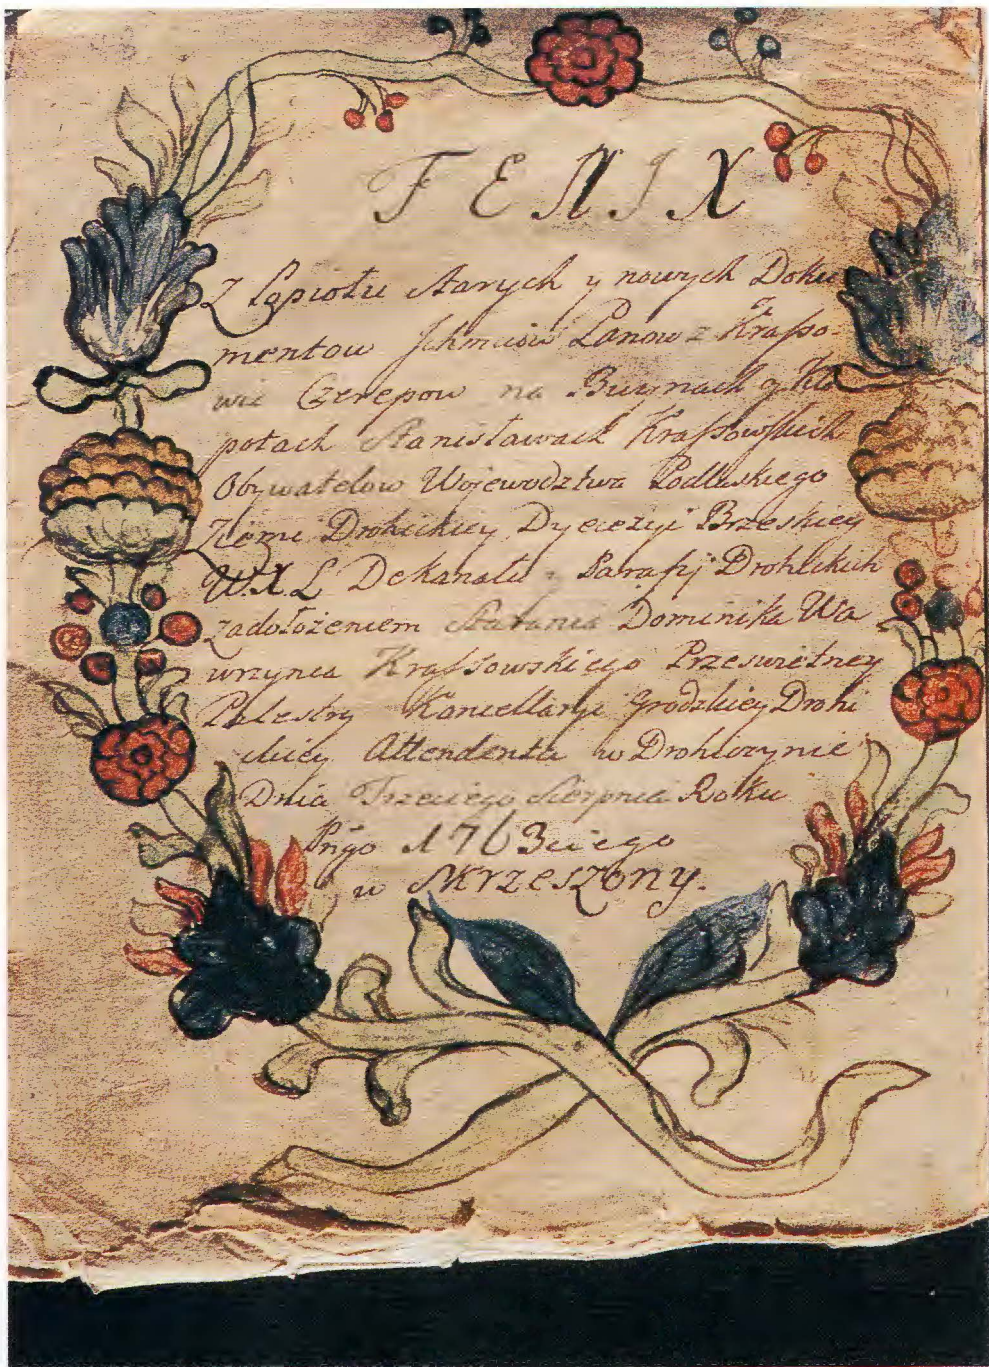 FENIX
Z Popiołu starych y nowych Doku
mentow Jchmciow Panow z Krasso-
wa Czerepow na Buynach y Kło
potach Stanisławach Krassowskich
Obywatelow Wojewodztwa Podlaskiego
Ziemi Drohickiey Dyecezyi Brzeskiey
W.X.L Dekanatu Parafij Drohickich
zadołożeniem starania Dominika Wa
wrzynca Krassowskiego Przeswietney
Palestry Kancellaryi Grodzkiey Drohi
ckiey Attendenta w Drohiczynie
Dnia Trzeciego Sierpnia Roku
Pńgo 1763ciego
w SKrzeszony.